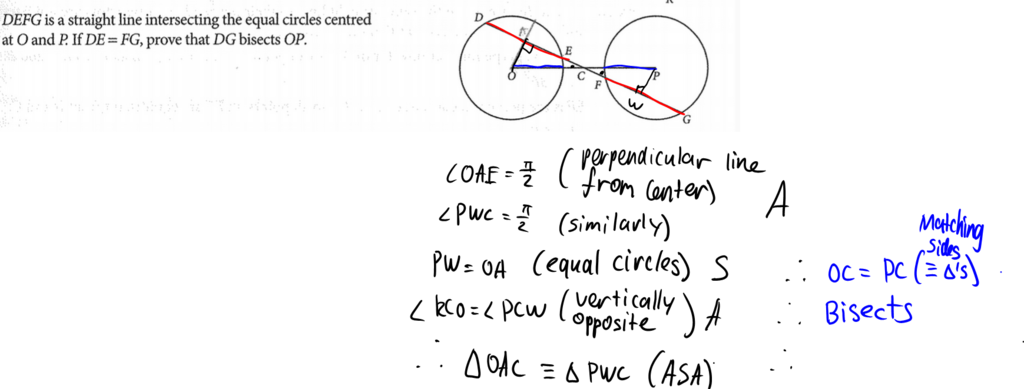 DEFG is a straight line intersecting the equal circles centred
at O and P. If DE = FG, prove that DG bisects OP.
D
E
O
C
F
P
W
G
∠OAE = π/2 (perpendicular line from center) A
∠PWC = π/2 (similarly)
PW = OA (equal circles) S
∠ kCO = ∠ PCW (vertically opposite) A
∴ ΔOAC ≡ Δ PWC (ASA) ∴
∴ OC = PC (≡ Δ's) Matching sides
∴ Bisects